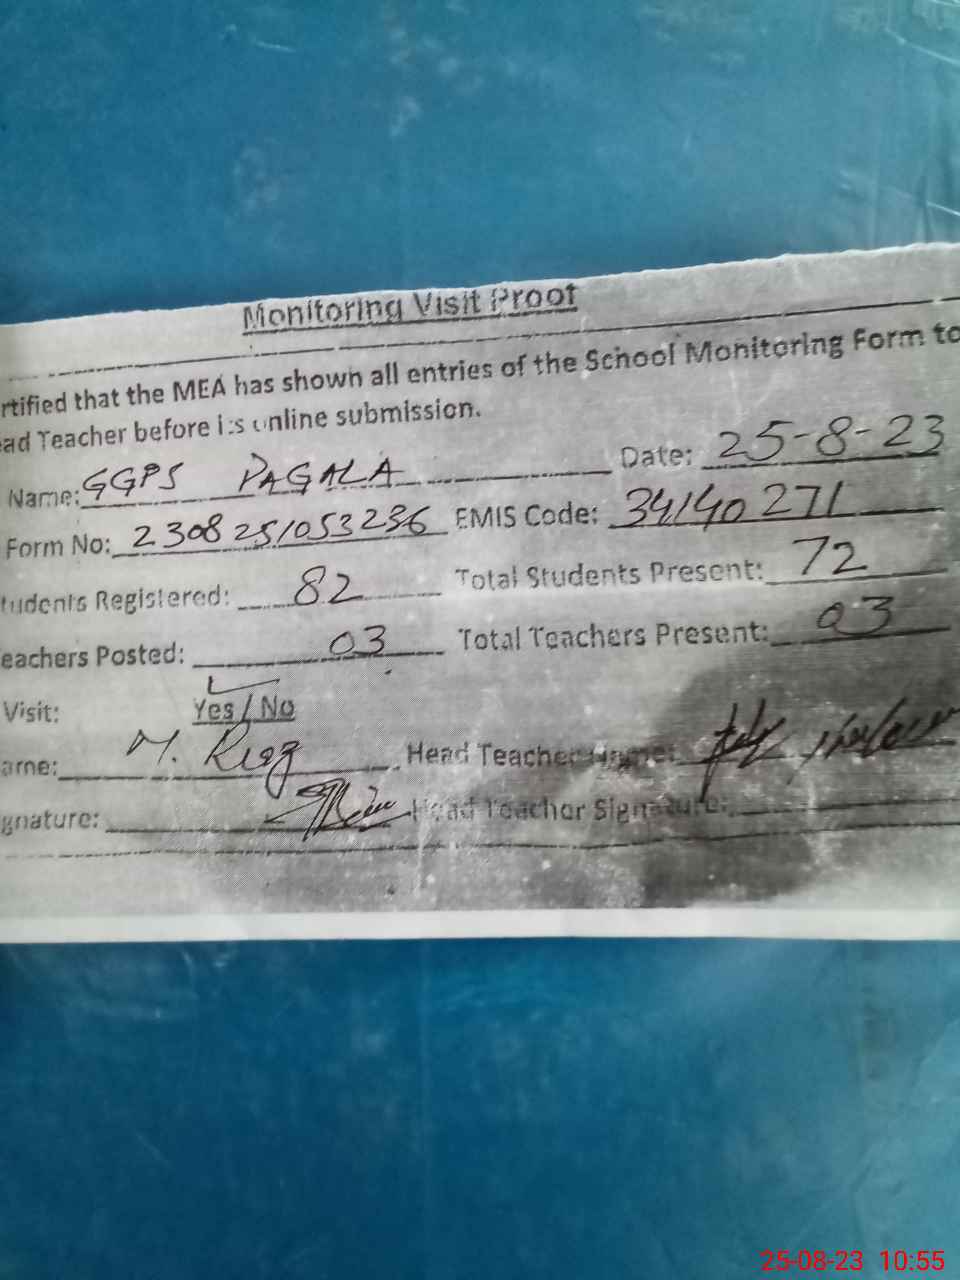 Monitoring Visit Proof
rtified that the MEA has shown all entries of the School Monitoring Form to
ead Teacher before its online submission.
Name: GGPS PAGALA Date: 25-8-23
Form No: 230825/053236 EMIS Code: 34140271
tudents Registered: 82 Total Students Present: 72
eachers Posted: 03 Total Teachers Present: 03
Visit: Yes / No
ame: M. Riaz Head Teacher Name:
gnature: Head Teacher Signature:
25-08-23 10:55